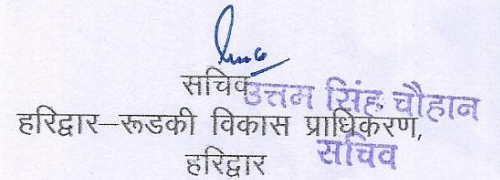 सचिव
उत्तम सिंह चौहान
हरिद्वार–रूडकी विकास प्राधिकरण,
सचिव
हरिद्वार